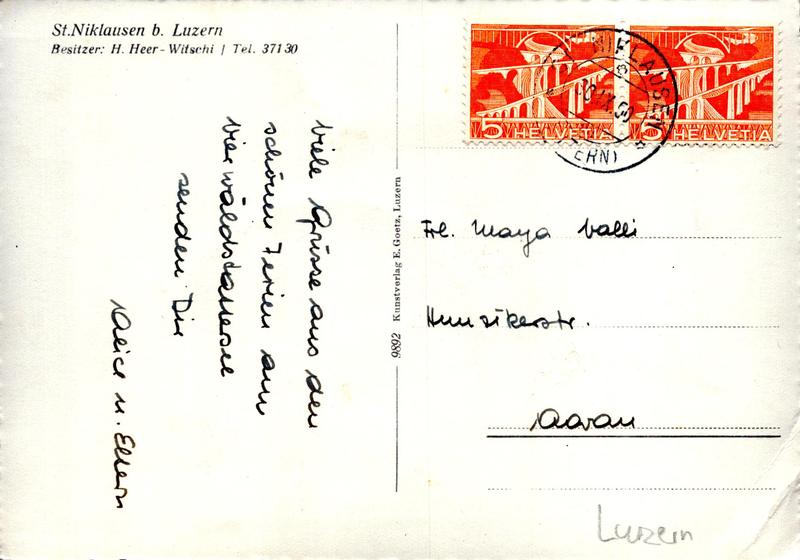 St.Niklausen b. Luzern
Besitzer: H. Heer-Witschi | Tel. 37130
5 HELVETIA
5 HELVETIA
NIKLAUSEN
IX.50
ZERN)
Viele Grüsse aus den
schönen Ferien am
Vierwaldstattersee
senden Dir
Alice u. Eltern
9892 Kunstverlag E. Goetz, Luzern
Frl. Maya Valli
Hunzikerstr.
Aarau
Luzern